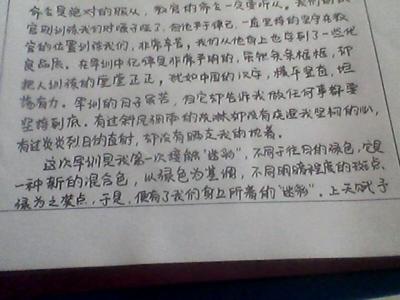 命令是绝对的服从，教官的命令一定要听从。我们的教
官训练我们时嗓子哑了，但他严于律己，一直坚持的坚守在教
官的位置训练我们，非常辛苦。我们从他身上也学到了一些优
良品质。在军训中纪律是非常严明的，条条框框，却
把人训练的堂堂正正，犹如中国的汉字，横平竖直，坦
荡有力。军训的日子虽苦，但它却告诉我做任何事都要
坚持到底。有过斜风细雨的洗淋却没有浇湿我坚韧的心，
有过炎炎烈日的直射，却没有晒去我的执着。
这次军训是我第一次接触“迷彩”，不同于往日的绿色，它是
一种新的混合色，以绿色为基调，不同明暗程度的斑点、
绿为之装点，于是，便有了我们身上所着的“迷彩”。上天赋予